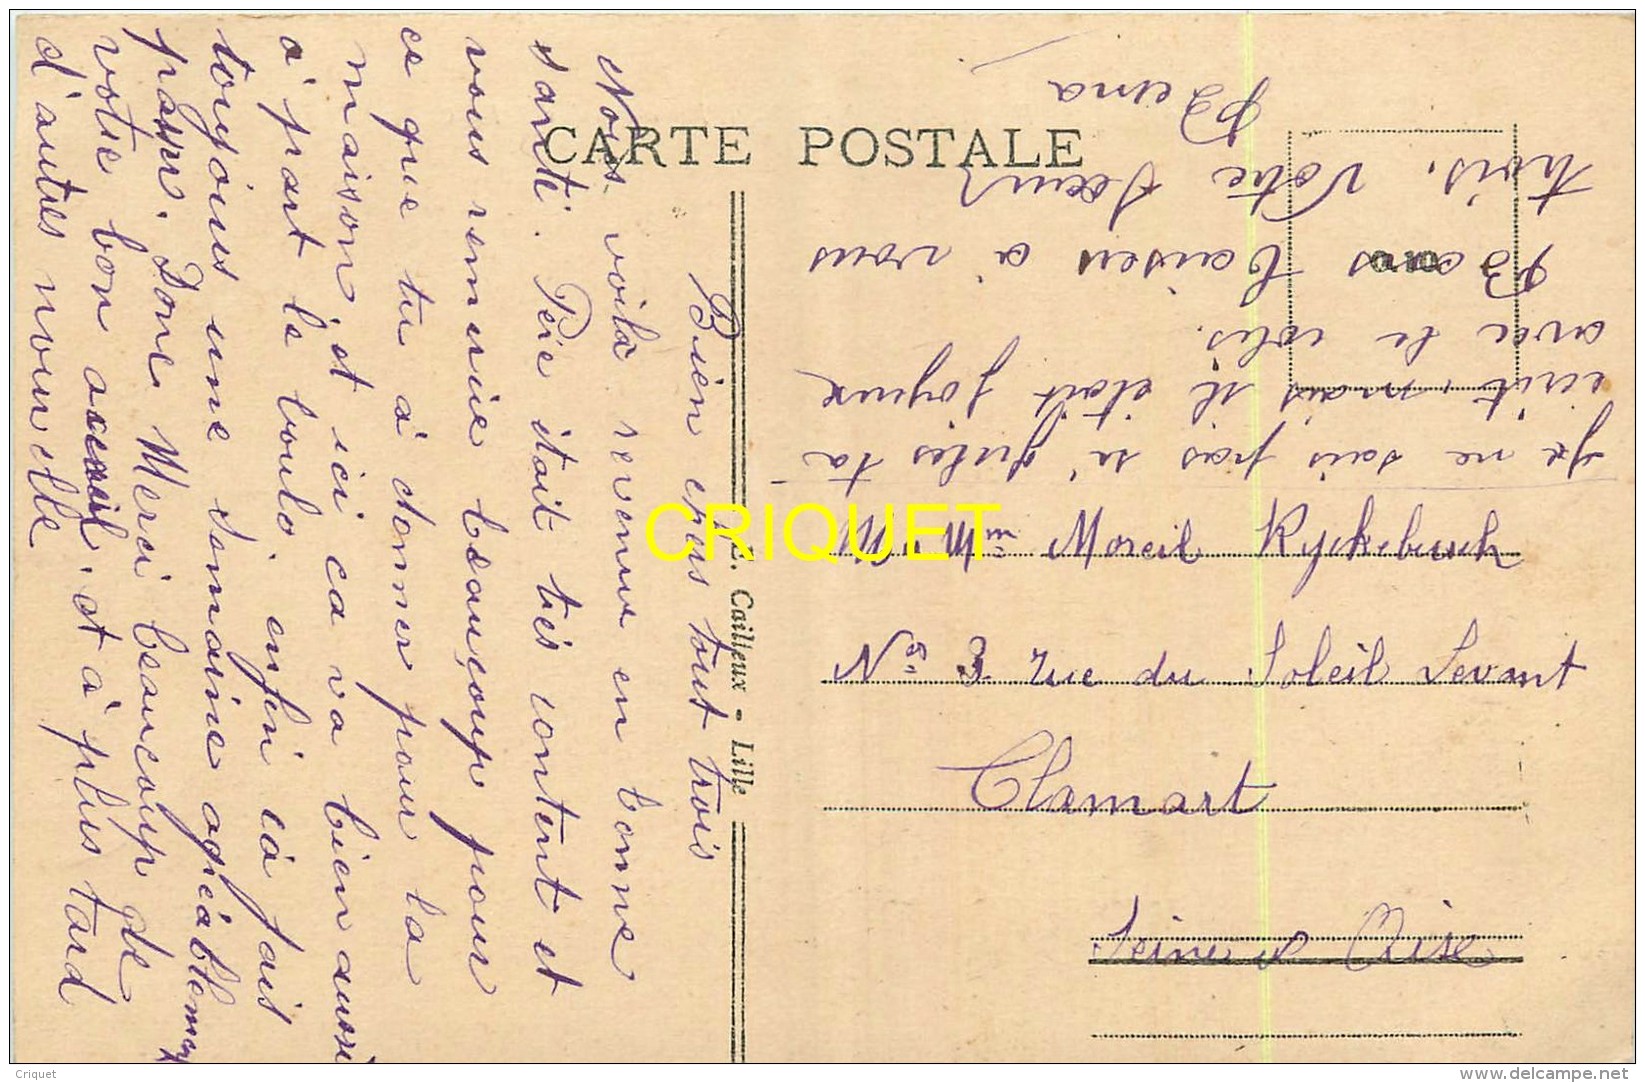 CARTE POSTALE
Bien chers tout trois
Nous voila revenus en bonne
santé. Père était très content et
vous remercie beauçoup pour
ce que tu à donner pour la
maison, et ici ca va bien aussi
à part le boulo. enfin cà fais
toujours une semaine agréablement
passer. Donc Merci beaucoup de
votre bon acceuil. et à plus tard
d'autres nouvelle
Je ne sais pas si Jules ta
ecrit, mais il était joyeux
avec le colis.
Bons baisers à vous
trois. Votre Soeur
E. Cailleux - Lille
M & Mme Ryckebusch
No 3 rue du Soleil Levant
Clamart
Seine & Oise
CRIQUET
Criquet
delcampe.net